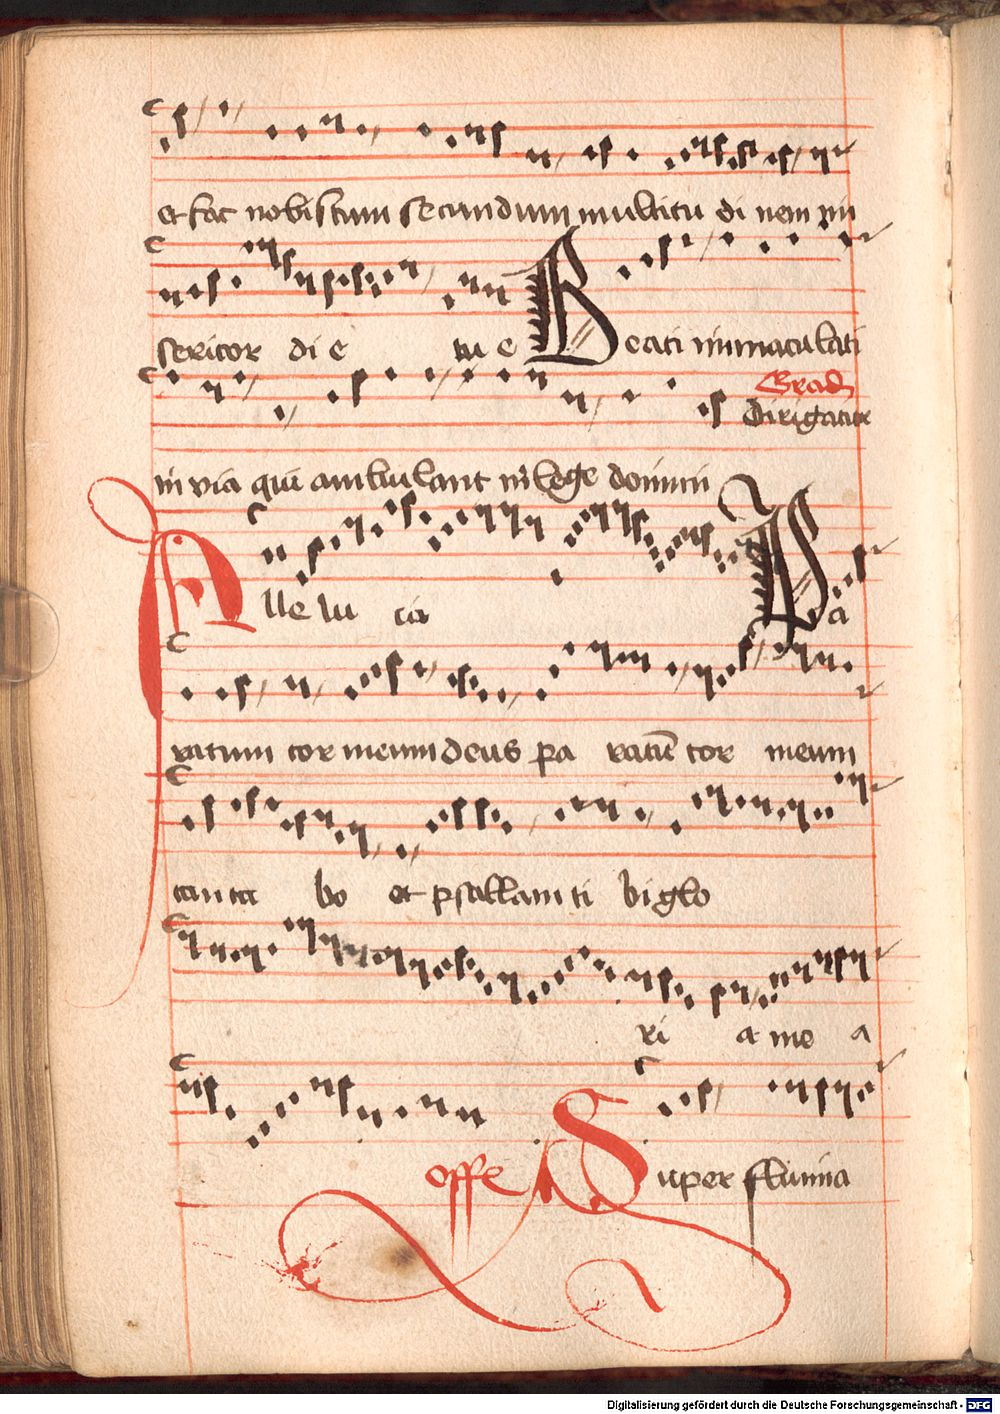 et fac nobiscum secundum multitu di nem mi
sericor di e tu e Beati immaculati
Grad
Dirigatur
in via qui ambulant in lege domini
Alle lu ia Pa
ratum cor meum deus pa ratū cor meum
canta bo et psallam ti bi glo
ri a me a
offe Super flumina
Digitalisierung gefördert durch die Deutsche Forschungsgemeinschaft - DFG